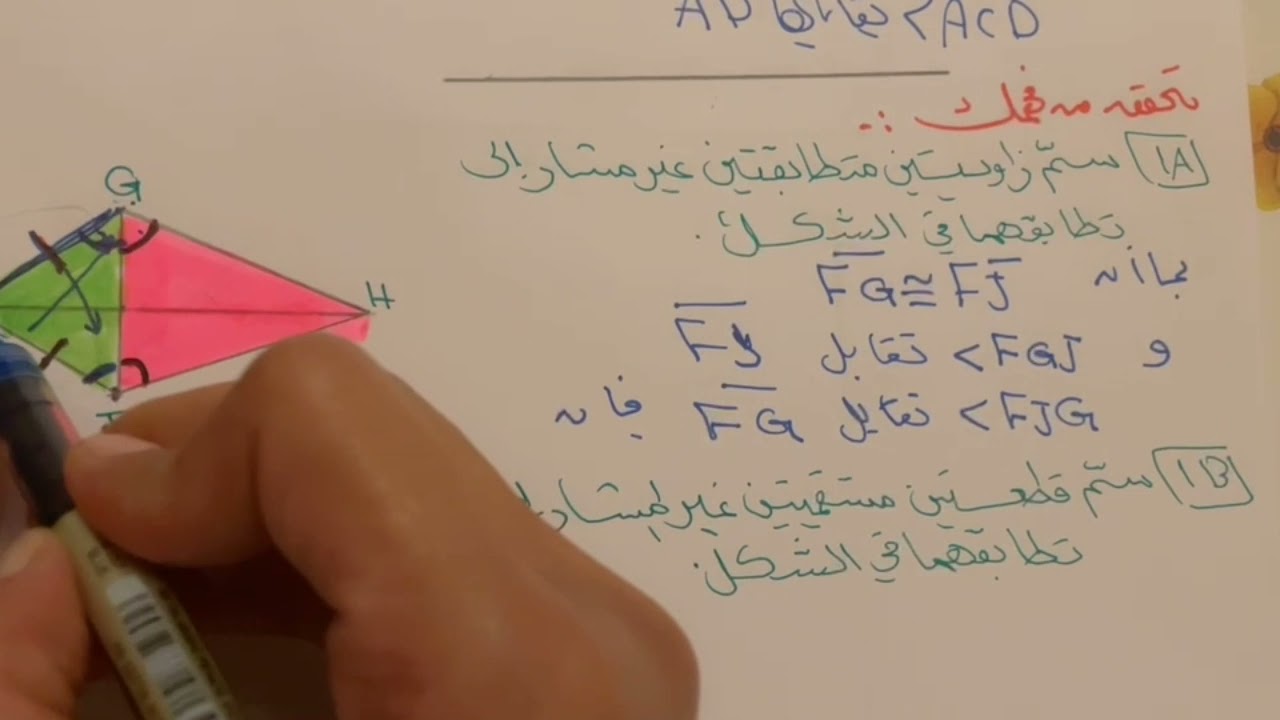 AD تقابلها <ACD
تحقق من فهمك :-
1A سمّ زاويتين متطابقتين غير مشار إلى
تطابقهما في الشكل.
بما أن FG ≅ FJ
و <FGJ تقابل FJ
<FJG تقابل FG فإن
1B سمّ قطعتين مستقيمتين غير المشار
تطابقهما في الشكل.
G
H